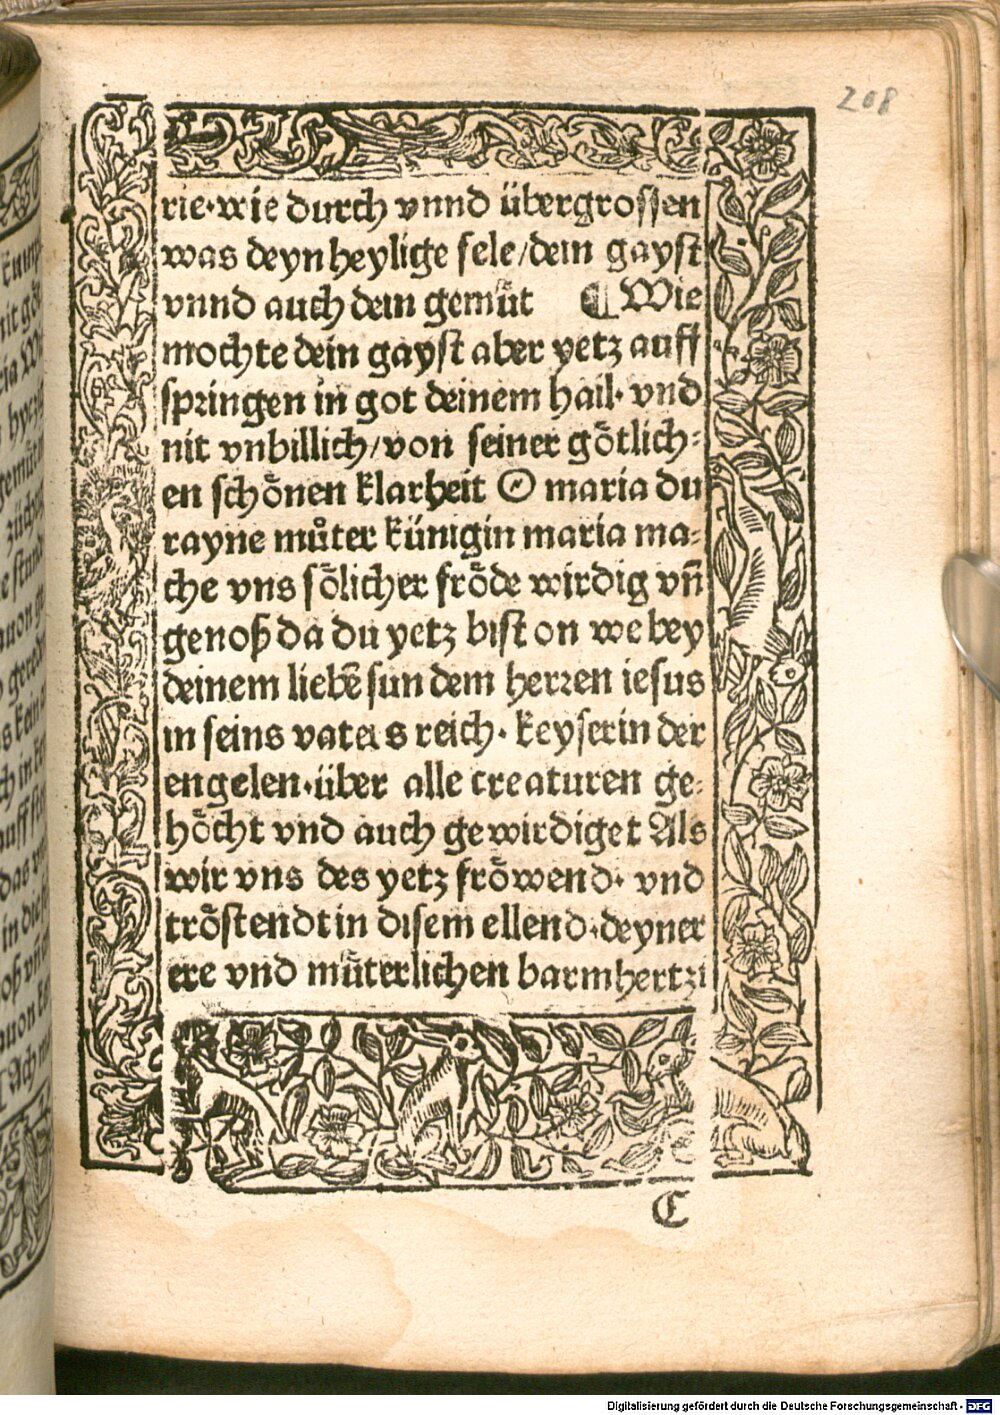 208
rie·wie durch vnnd übergrossen
was deyn heylige sele/dem gayst
vnnd auch dem gemuͤt ¶ Wie
mochte dein gayst aber yetz auff
springen in got deinem hail· vnd
nit vnbillich/von seiner goͤtlich⸗
en schoͤnen klarheit O maria du
rayne muͦter künigin maria ma⸗
che vns soͤlicher froͤde wirdig vn̄
genoß da du yetz bist on we bey
deinem liebē sun dem herren iesus
in seins vaters reich· keyserin der
engelen·über alle creaturen ge⸗
hoͤcht vnd auch gewirdiget Als
wir vns des yetz froͤwend· vnd
troͤstendt in disem ellend·deyner
ere vnd muͤterlichen barmhertzi
C
Digitalisierung gefördert durch die Deutsche Forschungsgemeinschaft - DFG